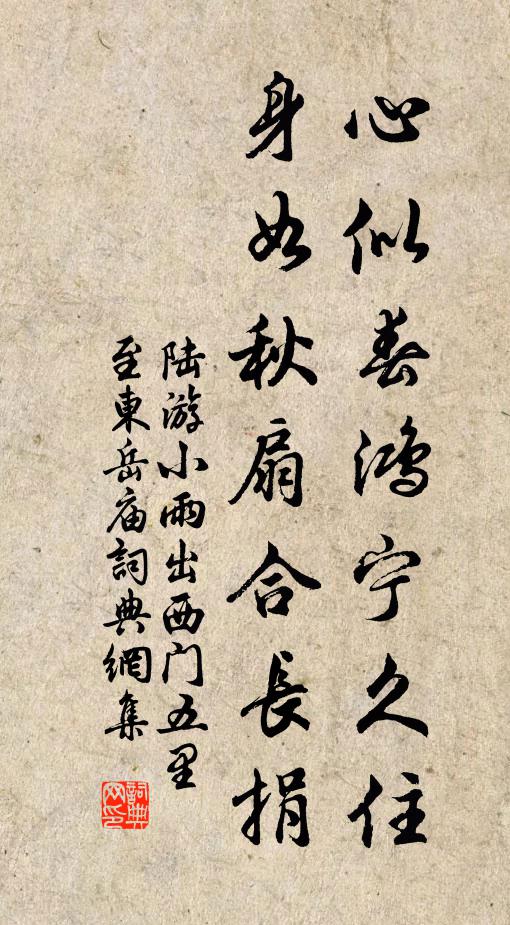 心似春鸿宁久住
身如秋扇合長捐
陆游小雨出西门五里
至東岳庙詞典網集
詞典网印